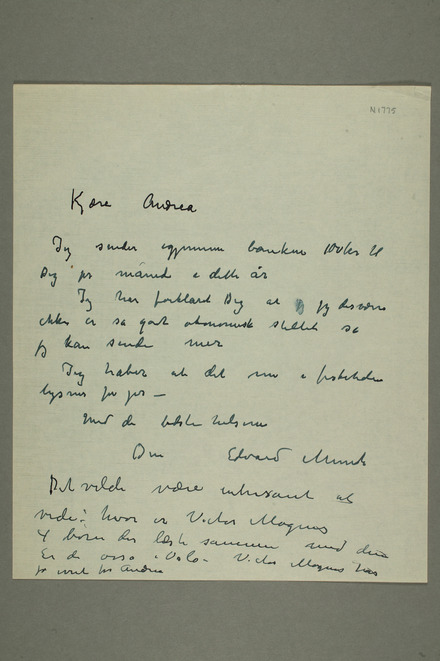 N1775
Kjære Andrea
Jeg sender igjennem banken 100 kr til
Dig pr måned i dette år
Jeg har forklaret Dig at jeg desværre
ikke er så godt økonomisk stillet så
jeg kan sende mer
Jeg håber at det nu i
lysner for
Med de bedste hilsener
Din Edvard Munch
Det vilde være interesant at
vide: hvor er Victor Mognus
4 børn der læste sammen med dem
Er de også i Oslo – Victor Mognus har
for Andrea